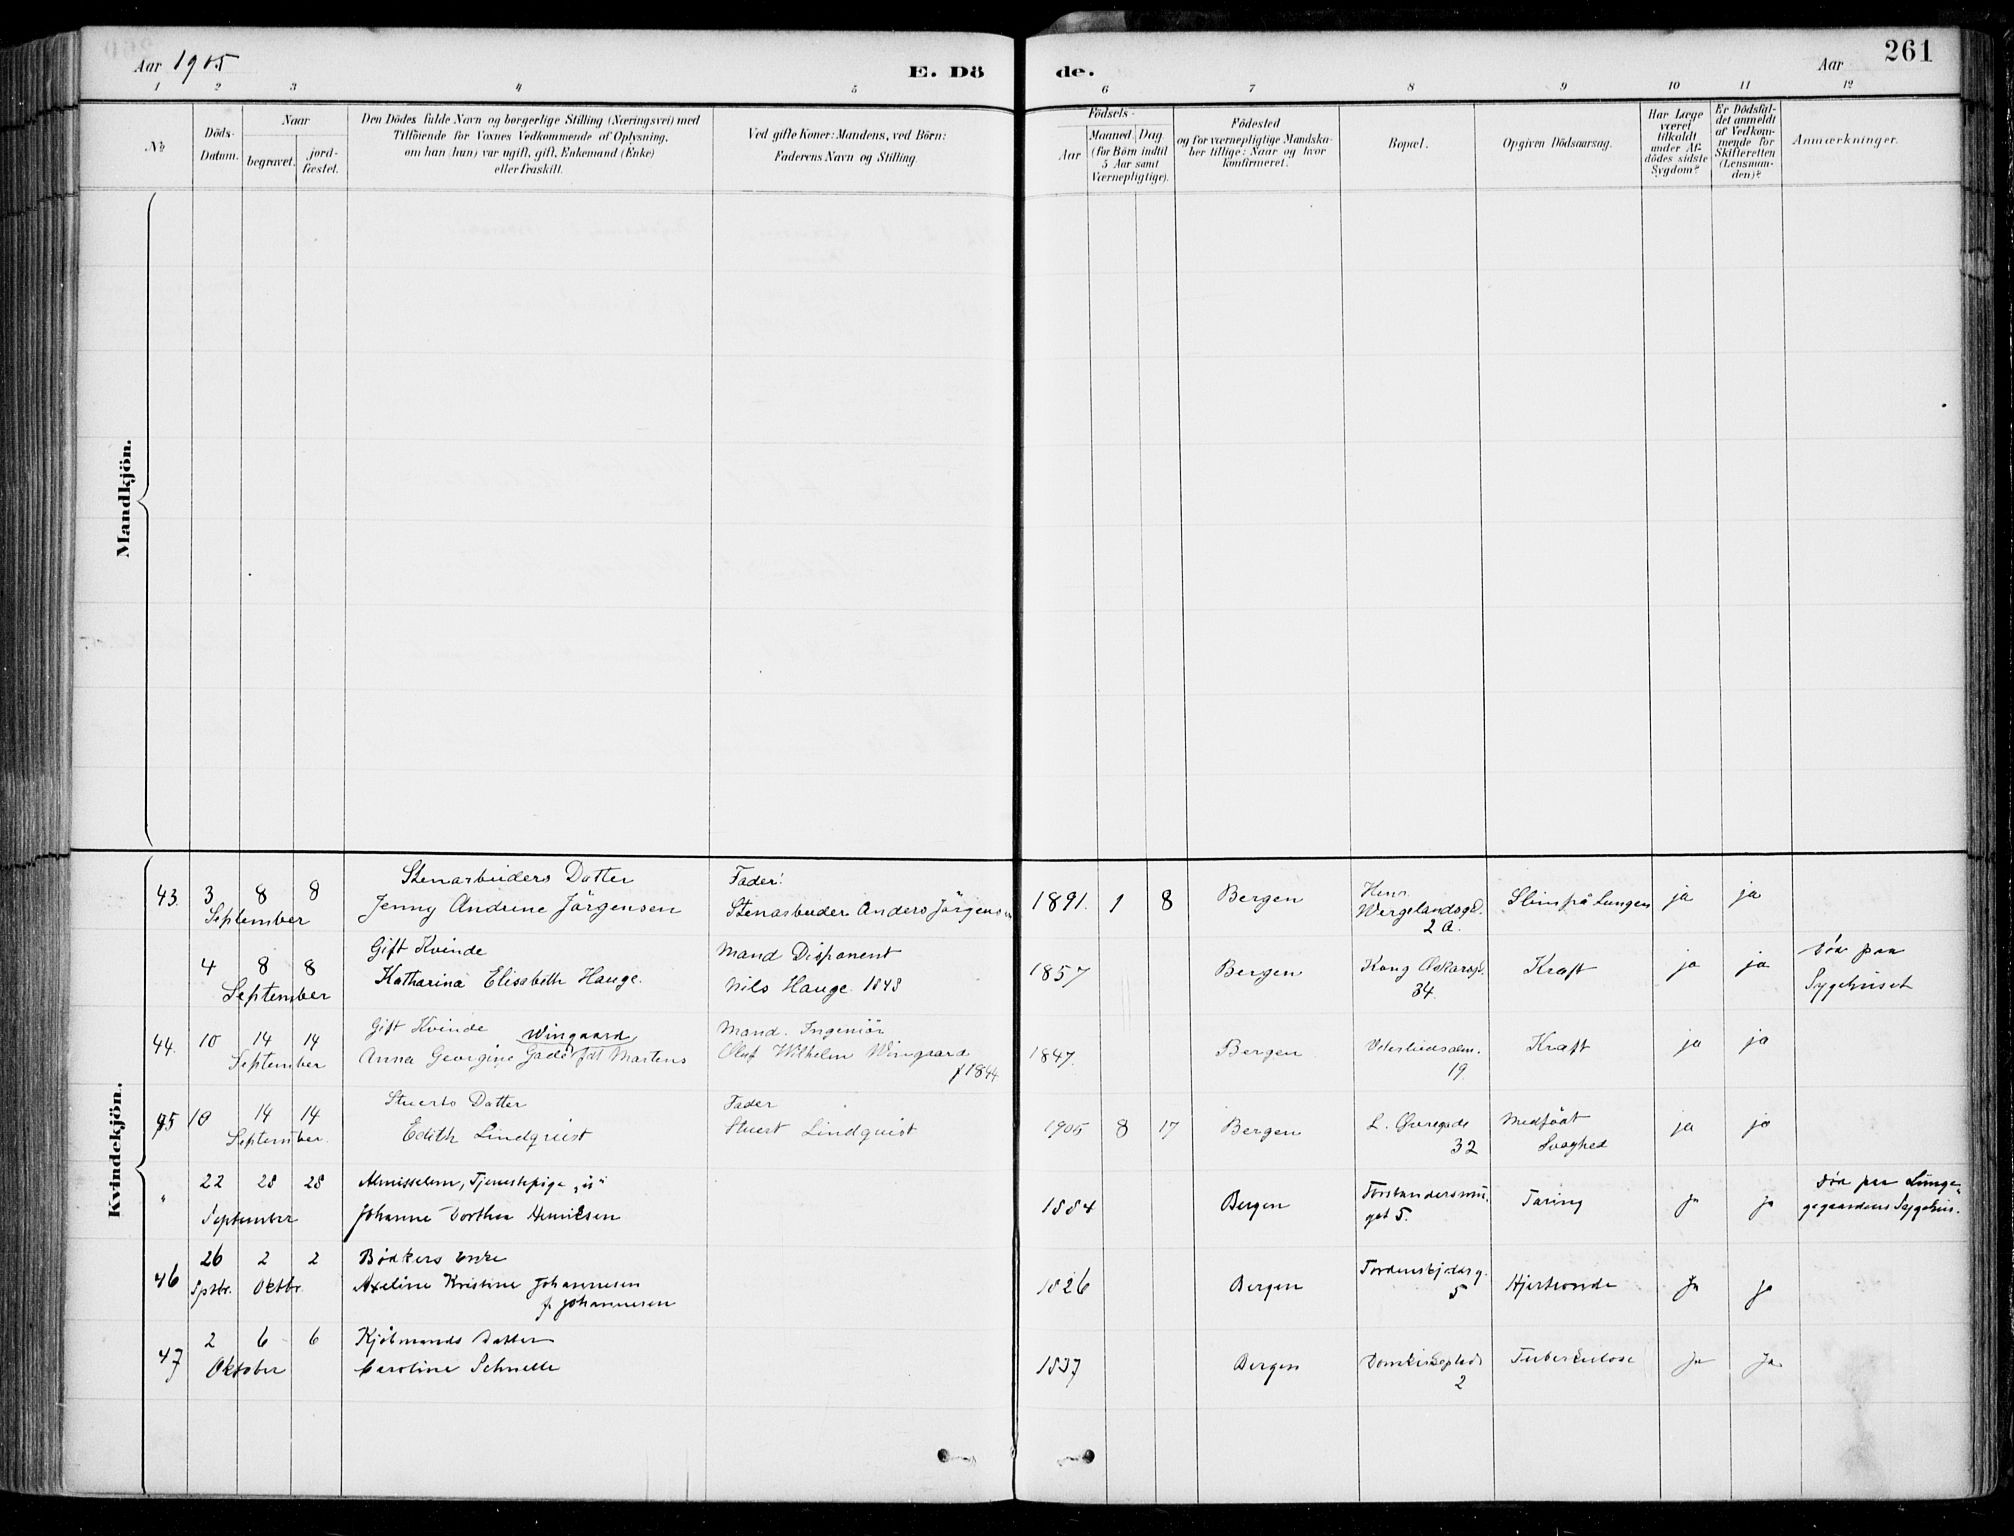 Aar 1905
E. Dö
de.
Aar
261
1 2 3 4 5 6 7 8 9 10 11 12
№
Döds-
Datum.
Naar
begravet.
jord-
fæstet.
Den Dödes fulde Navn og borgerlige Stilling (Næringsvei) med
Tilföiende for Voxnes Vedkommende af Oplysning,
om han (hun) var ugift, gift, Enkemand (Enke)
eller fraskilt.
Ved gifte Koner: Mandens, ved Börn:
Faderens Navn og Stilling.
Födsels-
Aar
Maaned Dag
(for Börn indtil
5 Aar samt
Værnepligtige).
Födested
og for værnepligtige Mandska-
ber tillige: Naar og hvor
konfirmeret.
Bopæl.
Opgiven Dödsaarsag.
Har Læge
været
tilkaldt
under Af-
dödes sidste
Sygdom?
Er Dödsfal-
det anmeldt
af Vedkom-
mende for
Skifteretten
(Lensman-
den)?
Anmærkninger.
Mandkjön.
Kvindekjön.
Stenarbeiders Datter
Fader:
43. 3 8 8
September
Jenny Andrine Jörgensen
Stenarbeider Anders Jörgensen
1891. 1 8
Bergen
Henr.
Wergelandsgd.
2 a.
Slim på Lungen
ja ja
Gift Kvinde
Mand Disponent
4 8 8
September
Katharina Elisabeth Hauge.
Nils Hauge 1843
1857
Bergen
Kong Oskarsgd.
34.
Kræft
ja ja
Död paa
Sygehuset
Gift Kvinde
Wingaard
Mand. Ingeniör
44. 10 14 14
September
Anna Georgine Gade fdt Martens
Oluf Wilhelm Wingaard
f 1844
1847.
Bergen
19
Kræft
ja ja
Stuerts Datter
Fader
45 10 14 14
September.
Edith Lindquist
Stuert Lindquist
1905 8 17
Bergen
L. Øvregade
32
Medfödt
Svaghed
ja ja
" 22 28 28
September
Almisselem, Tjenestepige
Johanne Dorthea Henriksen
1884
Bergen
Forstandersmu-
get 5.
Tæring
ja ja
Död paa Lunge-
gaardens Sygehus.
46 26 2 2
Sptbr. Oktbr
Bødkers Enke
Axeline Kristine Johannesen
f. Johannesen
1826
Bergen
Tordenskjoldsg.
5
Hjerteonde
Ja ja
47 2 6 6
Oktober
Kjöbmands Datter
Caroline Schnelle
1837
Bergen
Domkirkeplads
2
Tuberkulose
Ja Ja